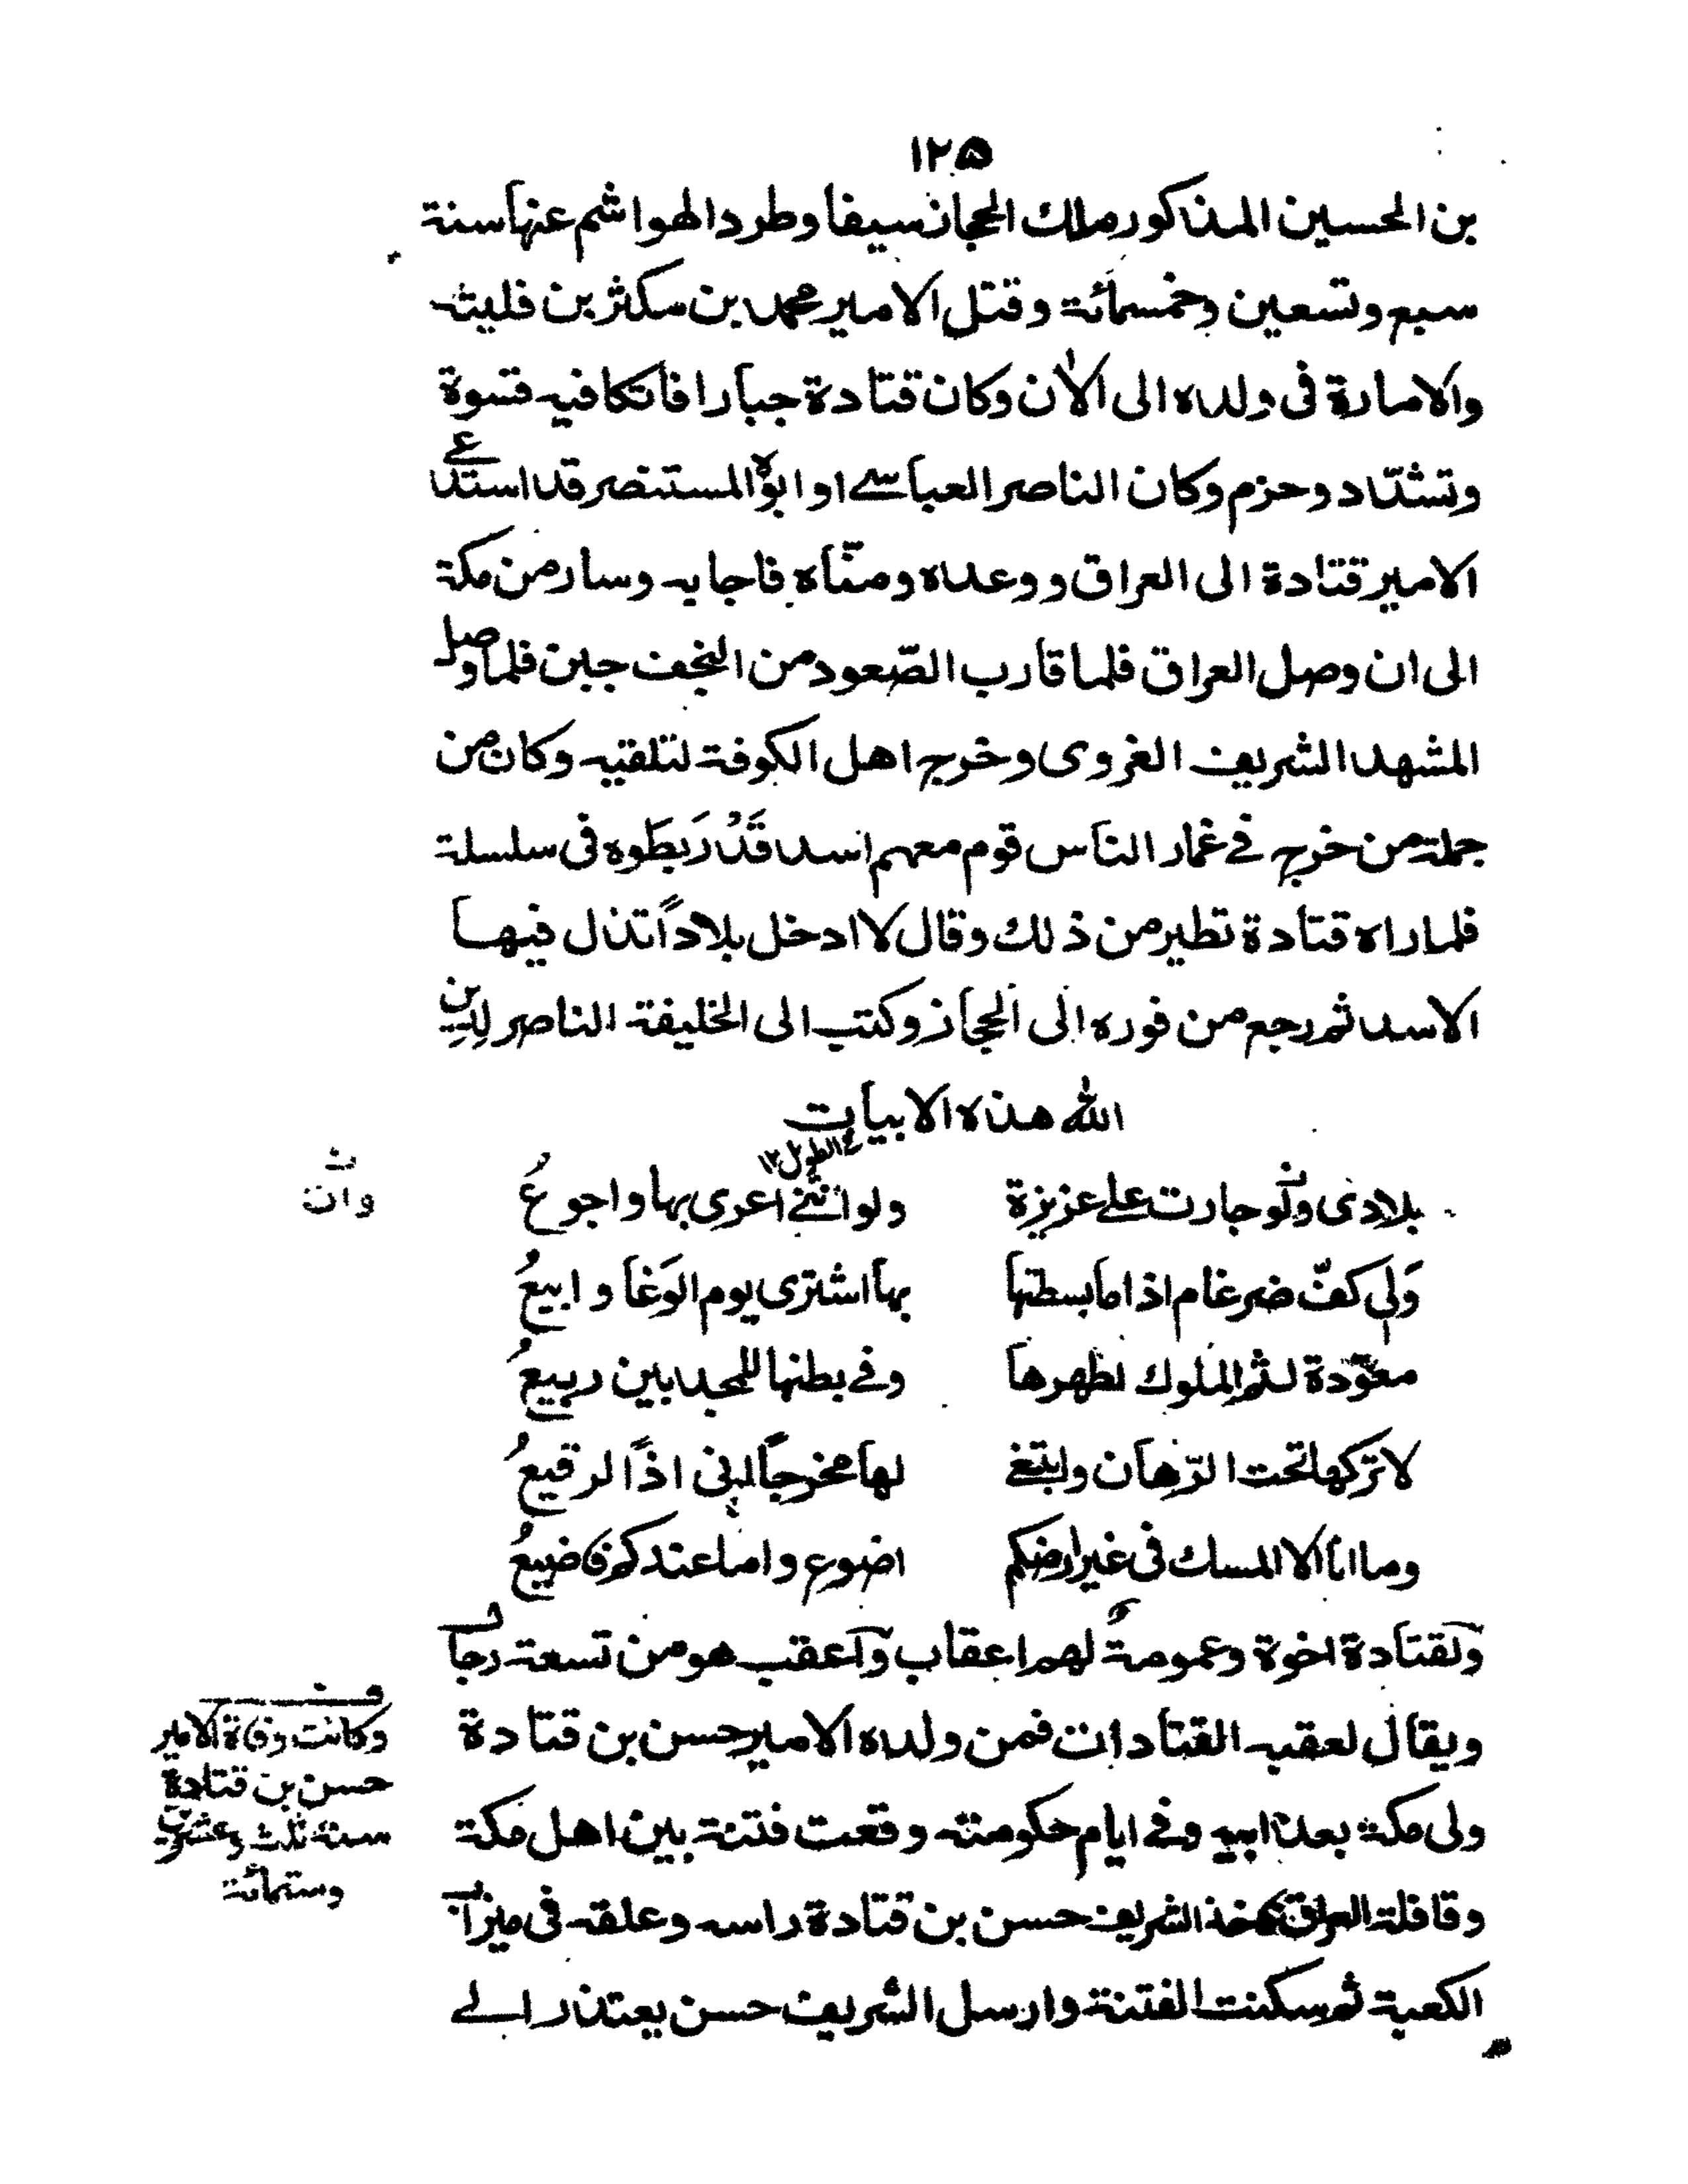 ١٢٥
بن الحسين المذكور ملك الحجاز سيفا وطرد الهواشم عنها سنة
سبع وتسعين وخمسمائة وقتل الامير محمد بن مكثر بن فليتة
والامارة فى ولده الى الاٰن وكان قتادة جبارا فاتكا فيه قسوة
وتشدّد وحزم وكان الناصر العباسے او ابوه المستنصر قد استدعے
الامير قتادة الى العراق ووعده ومنّاه فاجابه وسار من مكة
الى ان وصل العراق فلما قارب الصّعود من النجف جبن فلما وصل
المشهد الشريف الغروى وخرج اهل الكوفة لتلقيه وكان من
جملة من خرج فے غمار الناس قوم معهم اسد قَدْ رَبطَوه فى سلسلة
فلما راه قتادة تطير من ذلك وقال لا ادخل بلاداً تذل فيها
الاسد ثم رجع من فوره الى الحجاز وكتب الى الخليفة الناصر لِدينِ
الله هذه الابيات
ع الطويل ١٢
بلادى ولو جارت علے عزيزة ولو اننے اعرى بها واجوعُ
ن وان
وَلى كفّ ضرغام اذا ما بسطتها بها اشترى يوم الوَغا وابيعُ
معوّدة لثم الملوك لظهرها وفے بطنها للمجدبين ربيعُ
لا تركها تحت الرّهان وابتغے لها مخرجاً انى اذاً لرقيعُ
وما انا الا المسك فى غير ارضكم اضوع واما عندكم فاضيعُ
ولقتادة اخوة وعمومة لهم اعقاب واعقب هو من تسعة رجال
ويقال لعقبه القتادات فمن ولده الامير حسن بن قتادة
ولى مكة بعد ابيه وفے ايام حكومته وقعت فتنة بين اهل مكة
وقافلة العراق فاخذ الشريف حسن بن قتادة راسه وعلقه فى ميزاب
الكعبة ثم سكنت الفتنة وارسل الشريف حسن يعتذر الے
وكانت وفاة الامير
حسن بن قتادة
سنة ثلث وعشرين
وستمائة